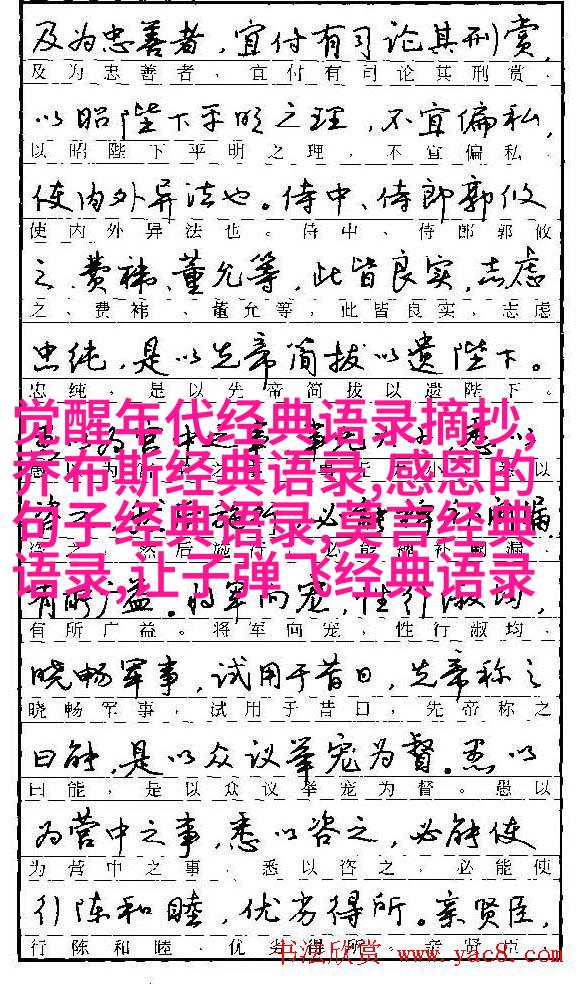 及为忠善者，宜付有司论其刑赏，
及为忠善者，宜付有司论其刑赏，
以昭陛下平明之理，不宜偏私，
以昭陛下平明之理，不宜偏私，
使内外异法也。侍中、侍郎郭攸
使内外异法也。侍中、侍郎郭攸
之、费祎、董允等，此皆良实，志虑
之、费祎、董允等，此皆良实，志虑
忠纯，是以先帝简拔以遗陛下。
忠纯，是以先帝简拔以遗陛下。
觉醒年代经典语录摘抄,
乔布斯经典语录,感恩的
句子经典语录,莫言经典
语录,让子弹飞经典语录
宫中之事 悉以
咨之，然后施行，必能裨补阙漏，
有所广益。将军向宠，性行淑均，
有所广益。将军向宠，性行淑均，
晓畅军事，试用于昔日，先帝称之
晓畅军事，试用于昔日，先帝称之
曰能，是以众议举宠为督。愚以
曰能，是以众议举宠为督。愚以
为营中之事，悉以咨之，必能使
为营中之事，悉以咨之，必能使
行陈和睦，优劣得所。亲贤臣，
行陈和睦，优劣得所。亲贤臣，
书法欣赏 www.yac8.com